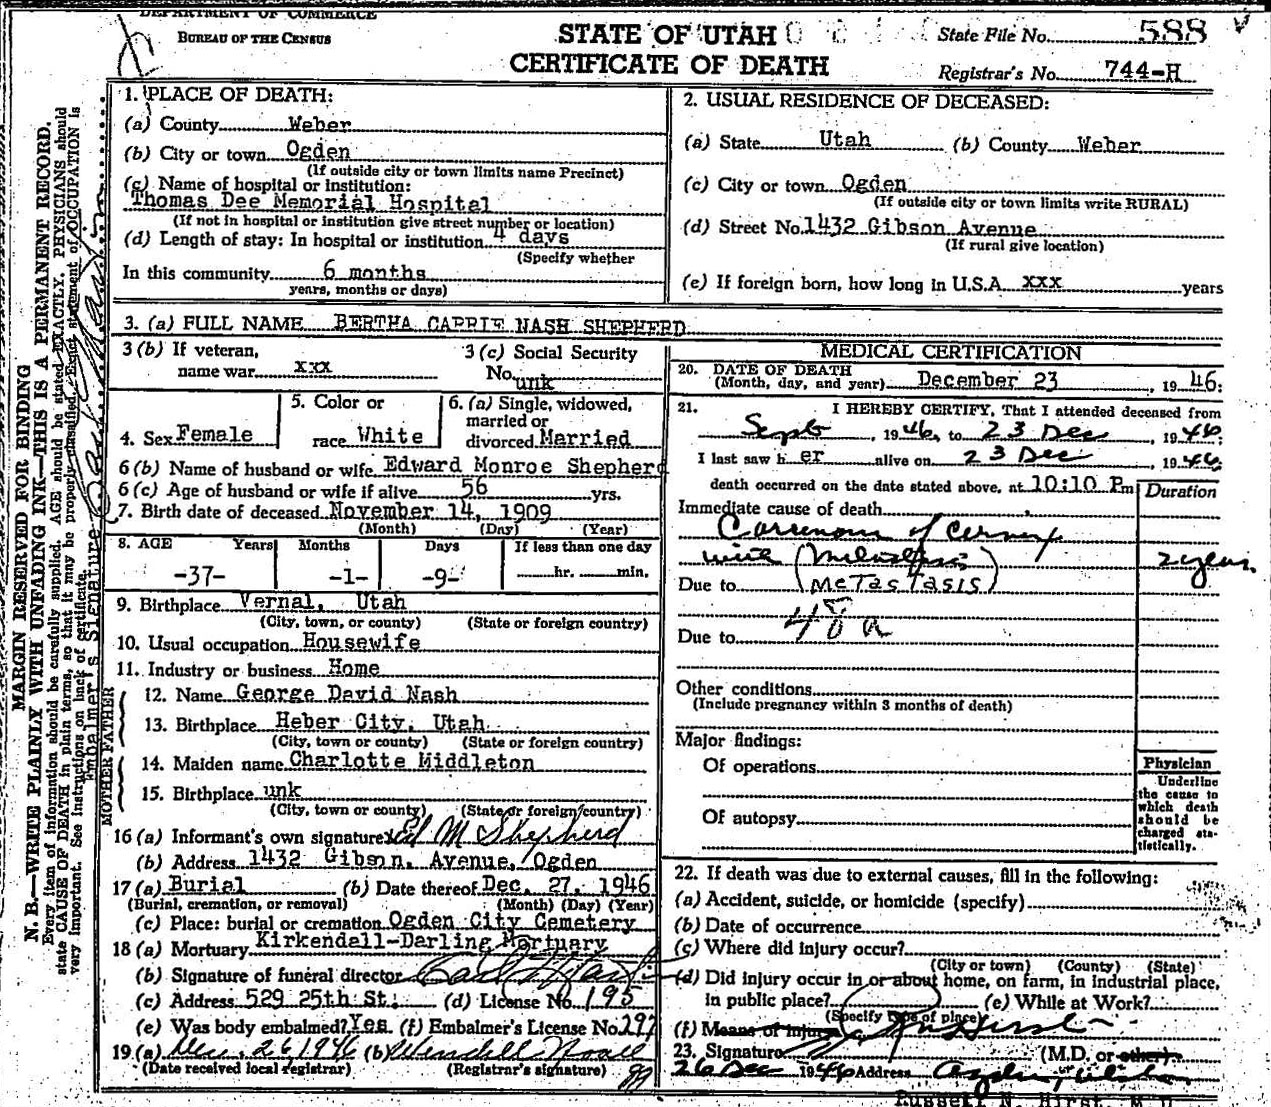 DEPARTMENT OF COMMERCE
BUREAU OF THE CENSUS
STATE OF UTAH
CERTIFICATE OF DEATH
State File No. 588
Registrar's No. 744-H
MARGIN RESERVED FOR BINDING
N. B.—WRITE PLAINLY WITH UNFADING INK—THIS IS A PERMANENT RECORD.
Every item of information should be carefully supplied. AGE should be stated EXACTLY. PHYSICIANS should
state CAUSE OF DEATH in plain terms, so that it may be properly classified. Exact statement of OCCUPATION is
very important. See instructions on back of certificate.
Embalmer's Signature
1. PLACE OF DEATH:
(a) County Weber
(b) City or town Ogden
(If outside city or town limits name Precinct)
(c) Name of hospital or institution:
Thomas Dee Memorial Hospital
(If not in hospital or institution give street number or location)
(d) Length of stay: In hospital or institution 4 days
(Specify whether
In this community 6 months
years, months or days)
2. USUAL RESIDENCE OF DECEASED:
(a) State Utah (b) County Weber
(c) City or town Ogden
(If outside city or town limits write RURAL)
(d) Street No. 1432 Gibson Avenue
(If rural give location)
(e) If foreign born, how long in U.S.A. xxx years
3. (a) FULL NAME BERTHA CARRIE NASH SHEPHERD
3 (b) If veteran, name war xxx
3 (c) Social Security No. unk
4. Sex Female
5. Color or race White
6. (a) Single, widowed, married or divorced Married
6 (b) Name of husband or wife Edward Monroe Shepherd
6 (c) Age of husband or wife if alive 56 yrs.
7. Birth date of deceased November 14, 1909
(Month) (Day) (Year)
8. AGE Years Months Days If less than one day
-37- -1- -9- hr. min.
9. Birthplace Vernal, Utah
(City, town, or county) (State or foreign country)
10. Usual occupation Housewife
11. Industry or business Home
FATHER
12. Name George David Nash
13. Birthplace Heber City, Utah
(City, town or county) (State or foreign country)
MOTHER
14. Maiden name Charlotte Middleton
15. Birthplace unk
(City, town or county) (State or foreign country)
16 (a) Informant's own signature Ed M Shepherd
(b) Address 1432 Gibson, Avenue, Ogden
17 (a) Burial (b) Date thereof Dec. 27, 1946
(Burial, cremation, or removal) (Month) (Day) (Year)
(c) Place: burial or cremation Ogden City Cemetery
18 (a) Mortuary Kirkendall-Darling Mortuary
(b) Signature of funeral director
(c) Address 529 25th St. (d) License No. 195
(e) Was body embalmed? Yes (f) Embalmer's License No. 297
19 (a) Dec. 26, 1946 (b) Wendell Noall
(Date received local registrar) (Registrar's signature)
MEDICAL CERTIFICATION
20. DATE OF DEATH
(Month, day, and year) December 23, 1946:
21. I HEREBY CERTIFY, That I attended deceased from
Sept, 1946, to 23 Dec, 1946:
I last saw h er alive on 23 Dec, 1946
death occurred on the date stated above, at 10:10 Pm
Duration
Immediate cause of death
Carcinoma of Cervix
with (Metastasis) 2 years.
Due to (MeTasTasis)
48 a
Due to
Other conditions
(Include pregnancy within 3 months of death)
Major findings:
Of operations
Of autopsy
Physician
Underline
the cause to
which death
should be
charged sta-
tistically.
22. If death was due to external causes, fill in the following:
(a) Accident, suicide, or homicide (specify)
(b) Date of occurrence
(c) Where did injury occur?
(City or town) (County) (State)
(d) Did injury occur in or about home, on farm, in industrial place,
in public place? (e) While at Work?
(Specify type of place)
(f) Means of injury
23. Signature R N Hirst (M.D. or other)
26 Dec 1946 Address Ogden, Utah
Russell N. Hirst, M D